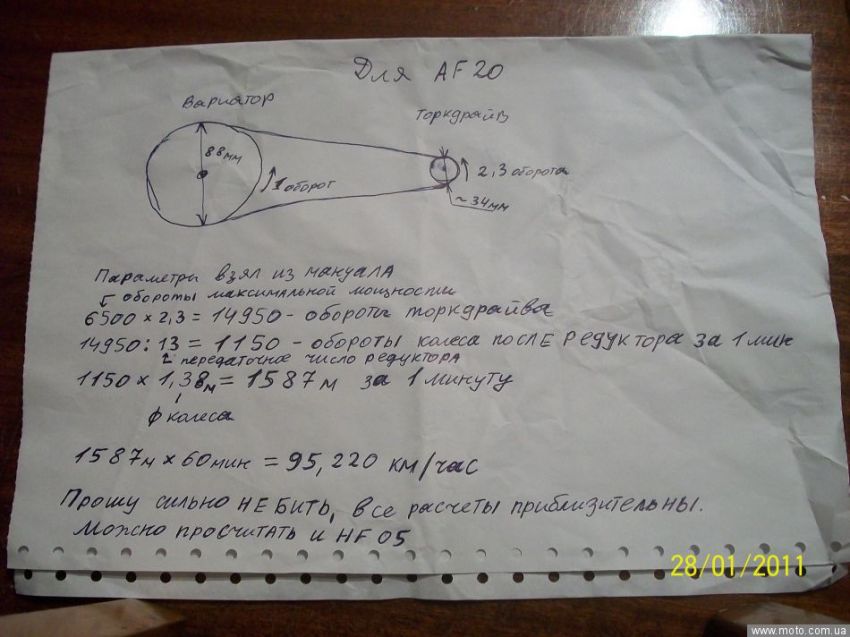 Для AF 20
Вариатор
Торкдрайв
88мм
1 оборот
2,3 оборота
~34мм
Параметры взял из мануала
обороты максимальной мощности
6500 x 2,3 = 14950 - обороты торкдрайва
14950 : 13 = 1150 - обороты колеса после редуктора за 1 мин
передаточное число редуктора
1150 x 1,38м = 1587м за 1 минуту
ф колеса
1587м x 60мин = 95,220 км/час
Прошу сильно НЕ БИТЬ, все расчеты приблизительны.
Можно просчитать и HF 05
28/01/2011
www.moto.com.ua